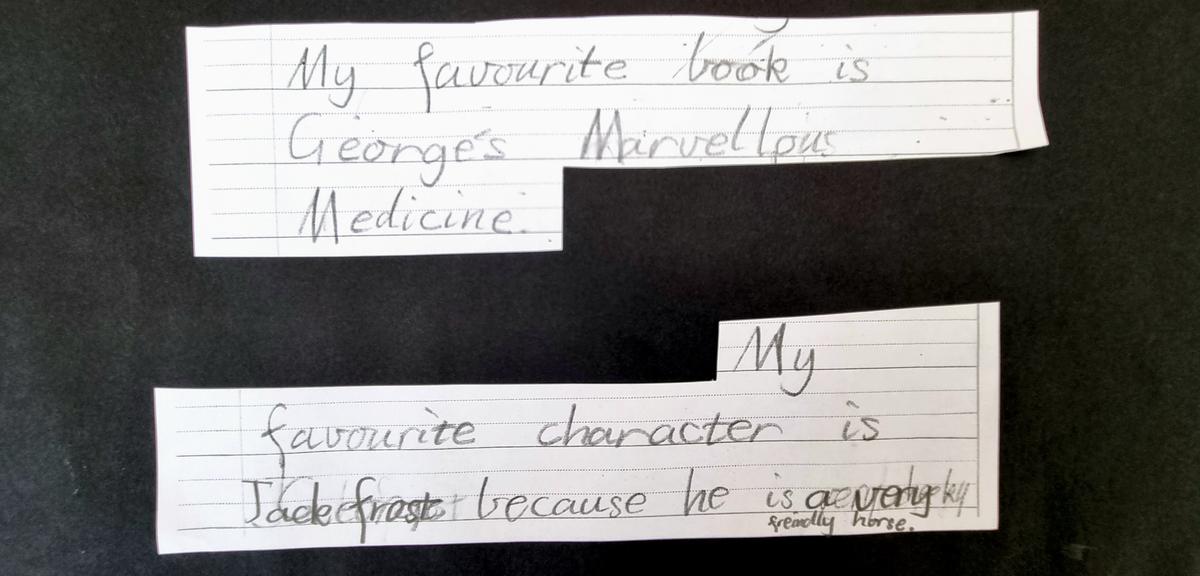 My favourite book is
George's Marvellous
Medicine.
My
favourite character is
because he is a very
freindly horse.